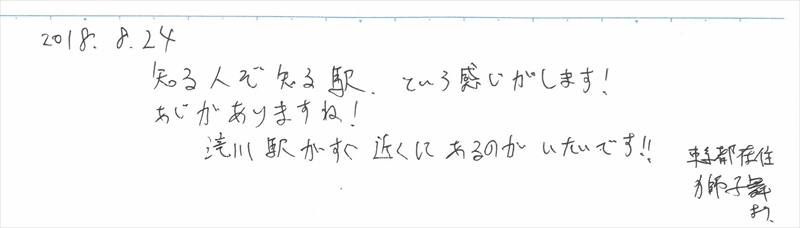 2018. 8. 24
知る人ぞ知る駅、という感じがします!
あじがありますね!
滝川駅がすぐ近くにあるのがいたいです!!
東京都在住
獅子舞
より